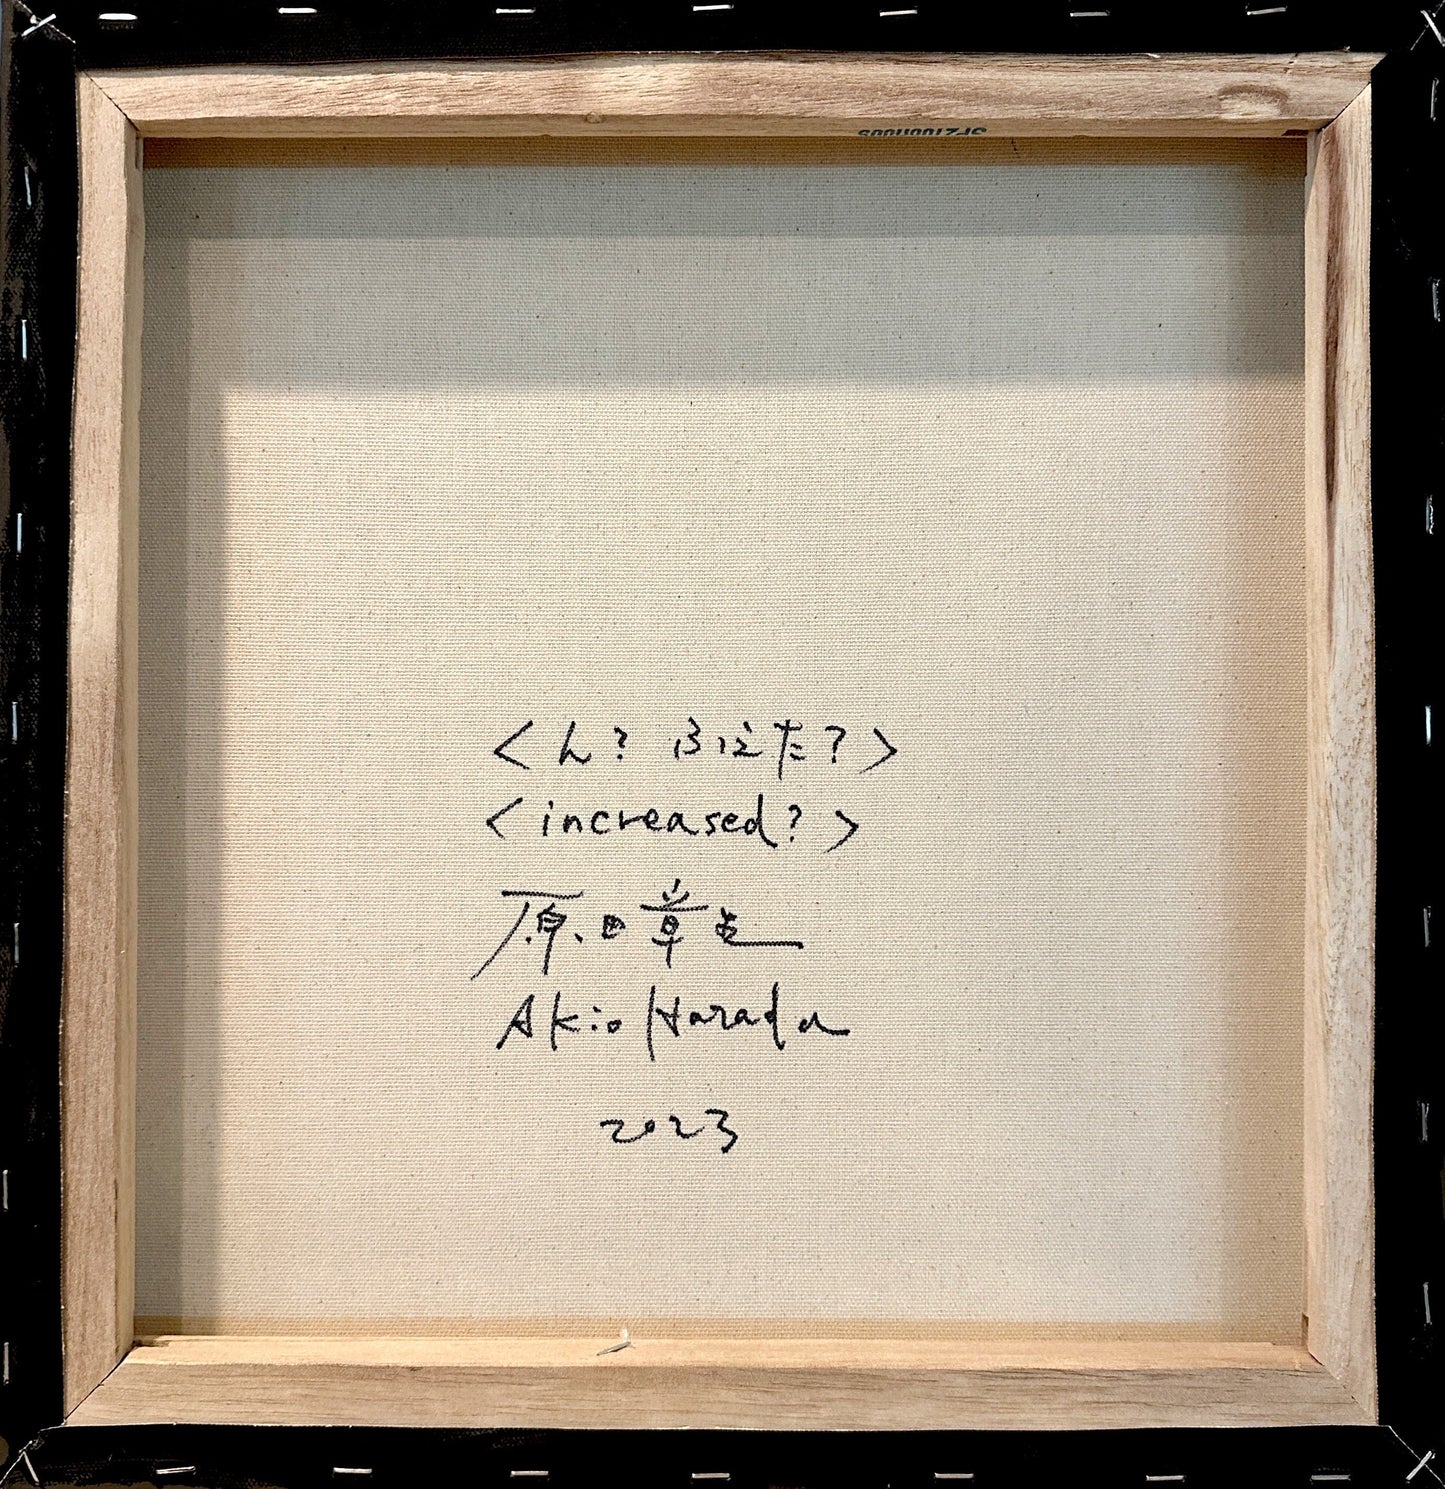 <ん? ふえた?>
<increased?>
原田章生
Akio Harada
2023